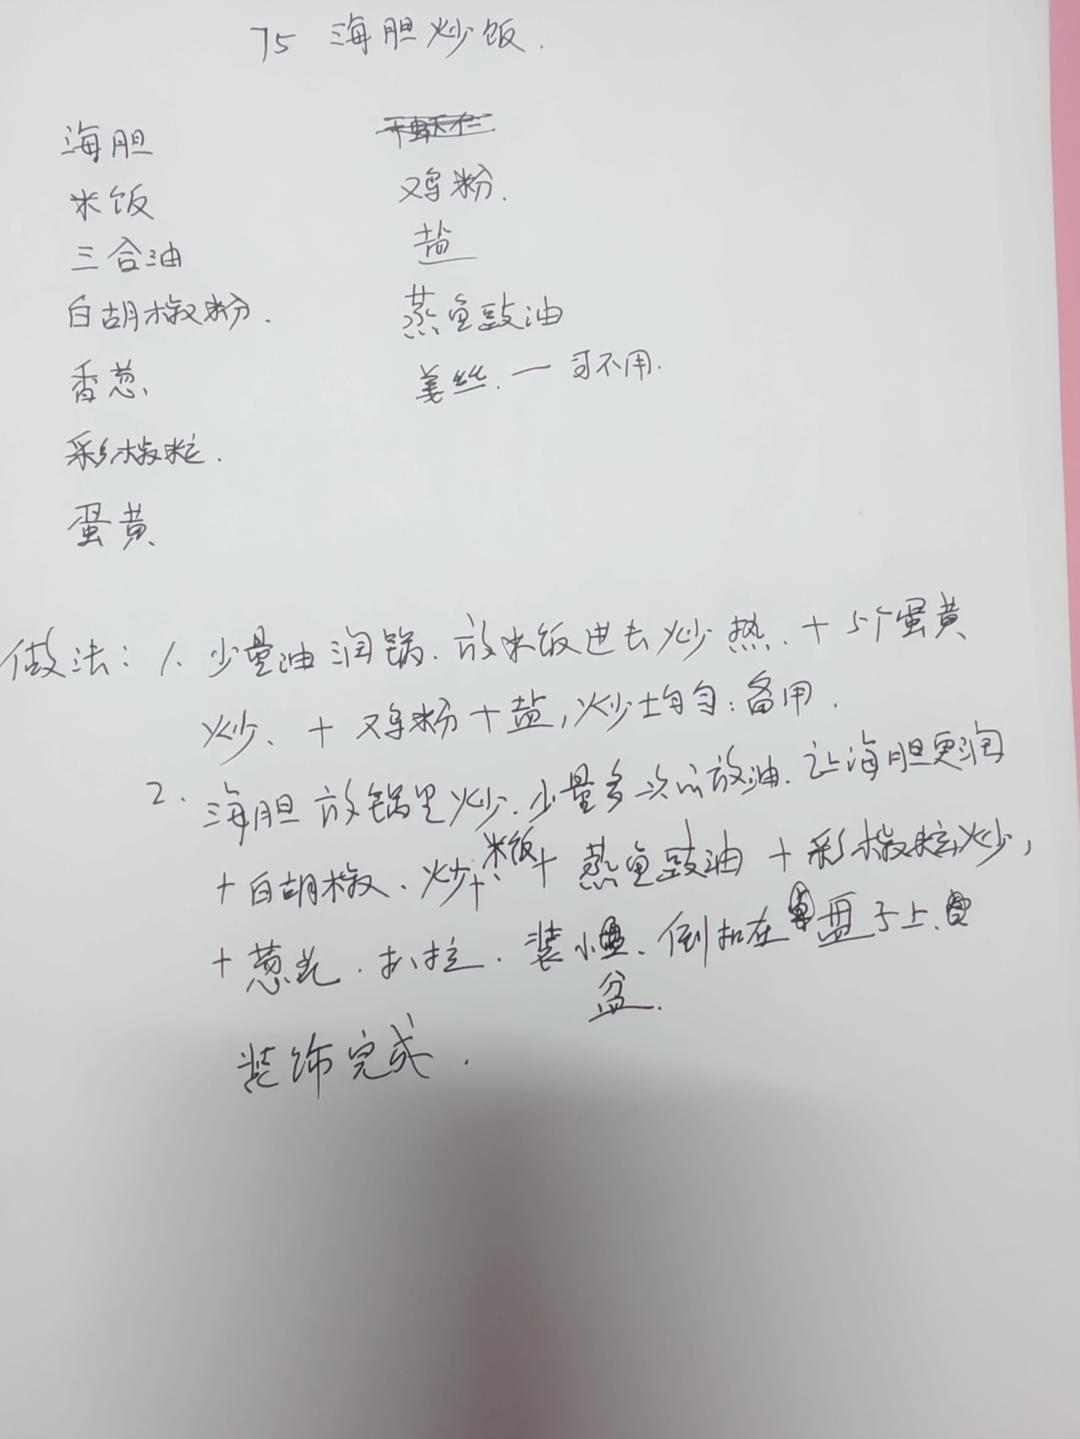 75 海胆炒饭.
海胆
米饭
三合油
白胡椒粉.
香葱、
彩椒粒.
蛋黄、
鸡粉.
盐
蒸鱼豉油
姜丝. 一 可不用.
做法: 1. 少量油润锅. 放米饭进去炒热. + 5个蛋黄
炒、+ 鸡粉 + 盐, 炒均匀: 备用.
2. 海胆放锅里炒. 少量多次的放油. 让海胆更润
+ 白胡椒. 炒 + 米饭 + 蒸鱼豉油 + 彩椒粒炒,
+ 葱花. 扒拉. 装小盆. 倒扣在盘子上.
装饰完成.